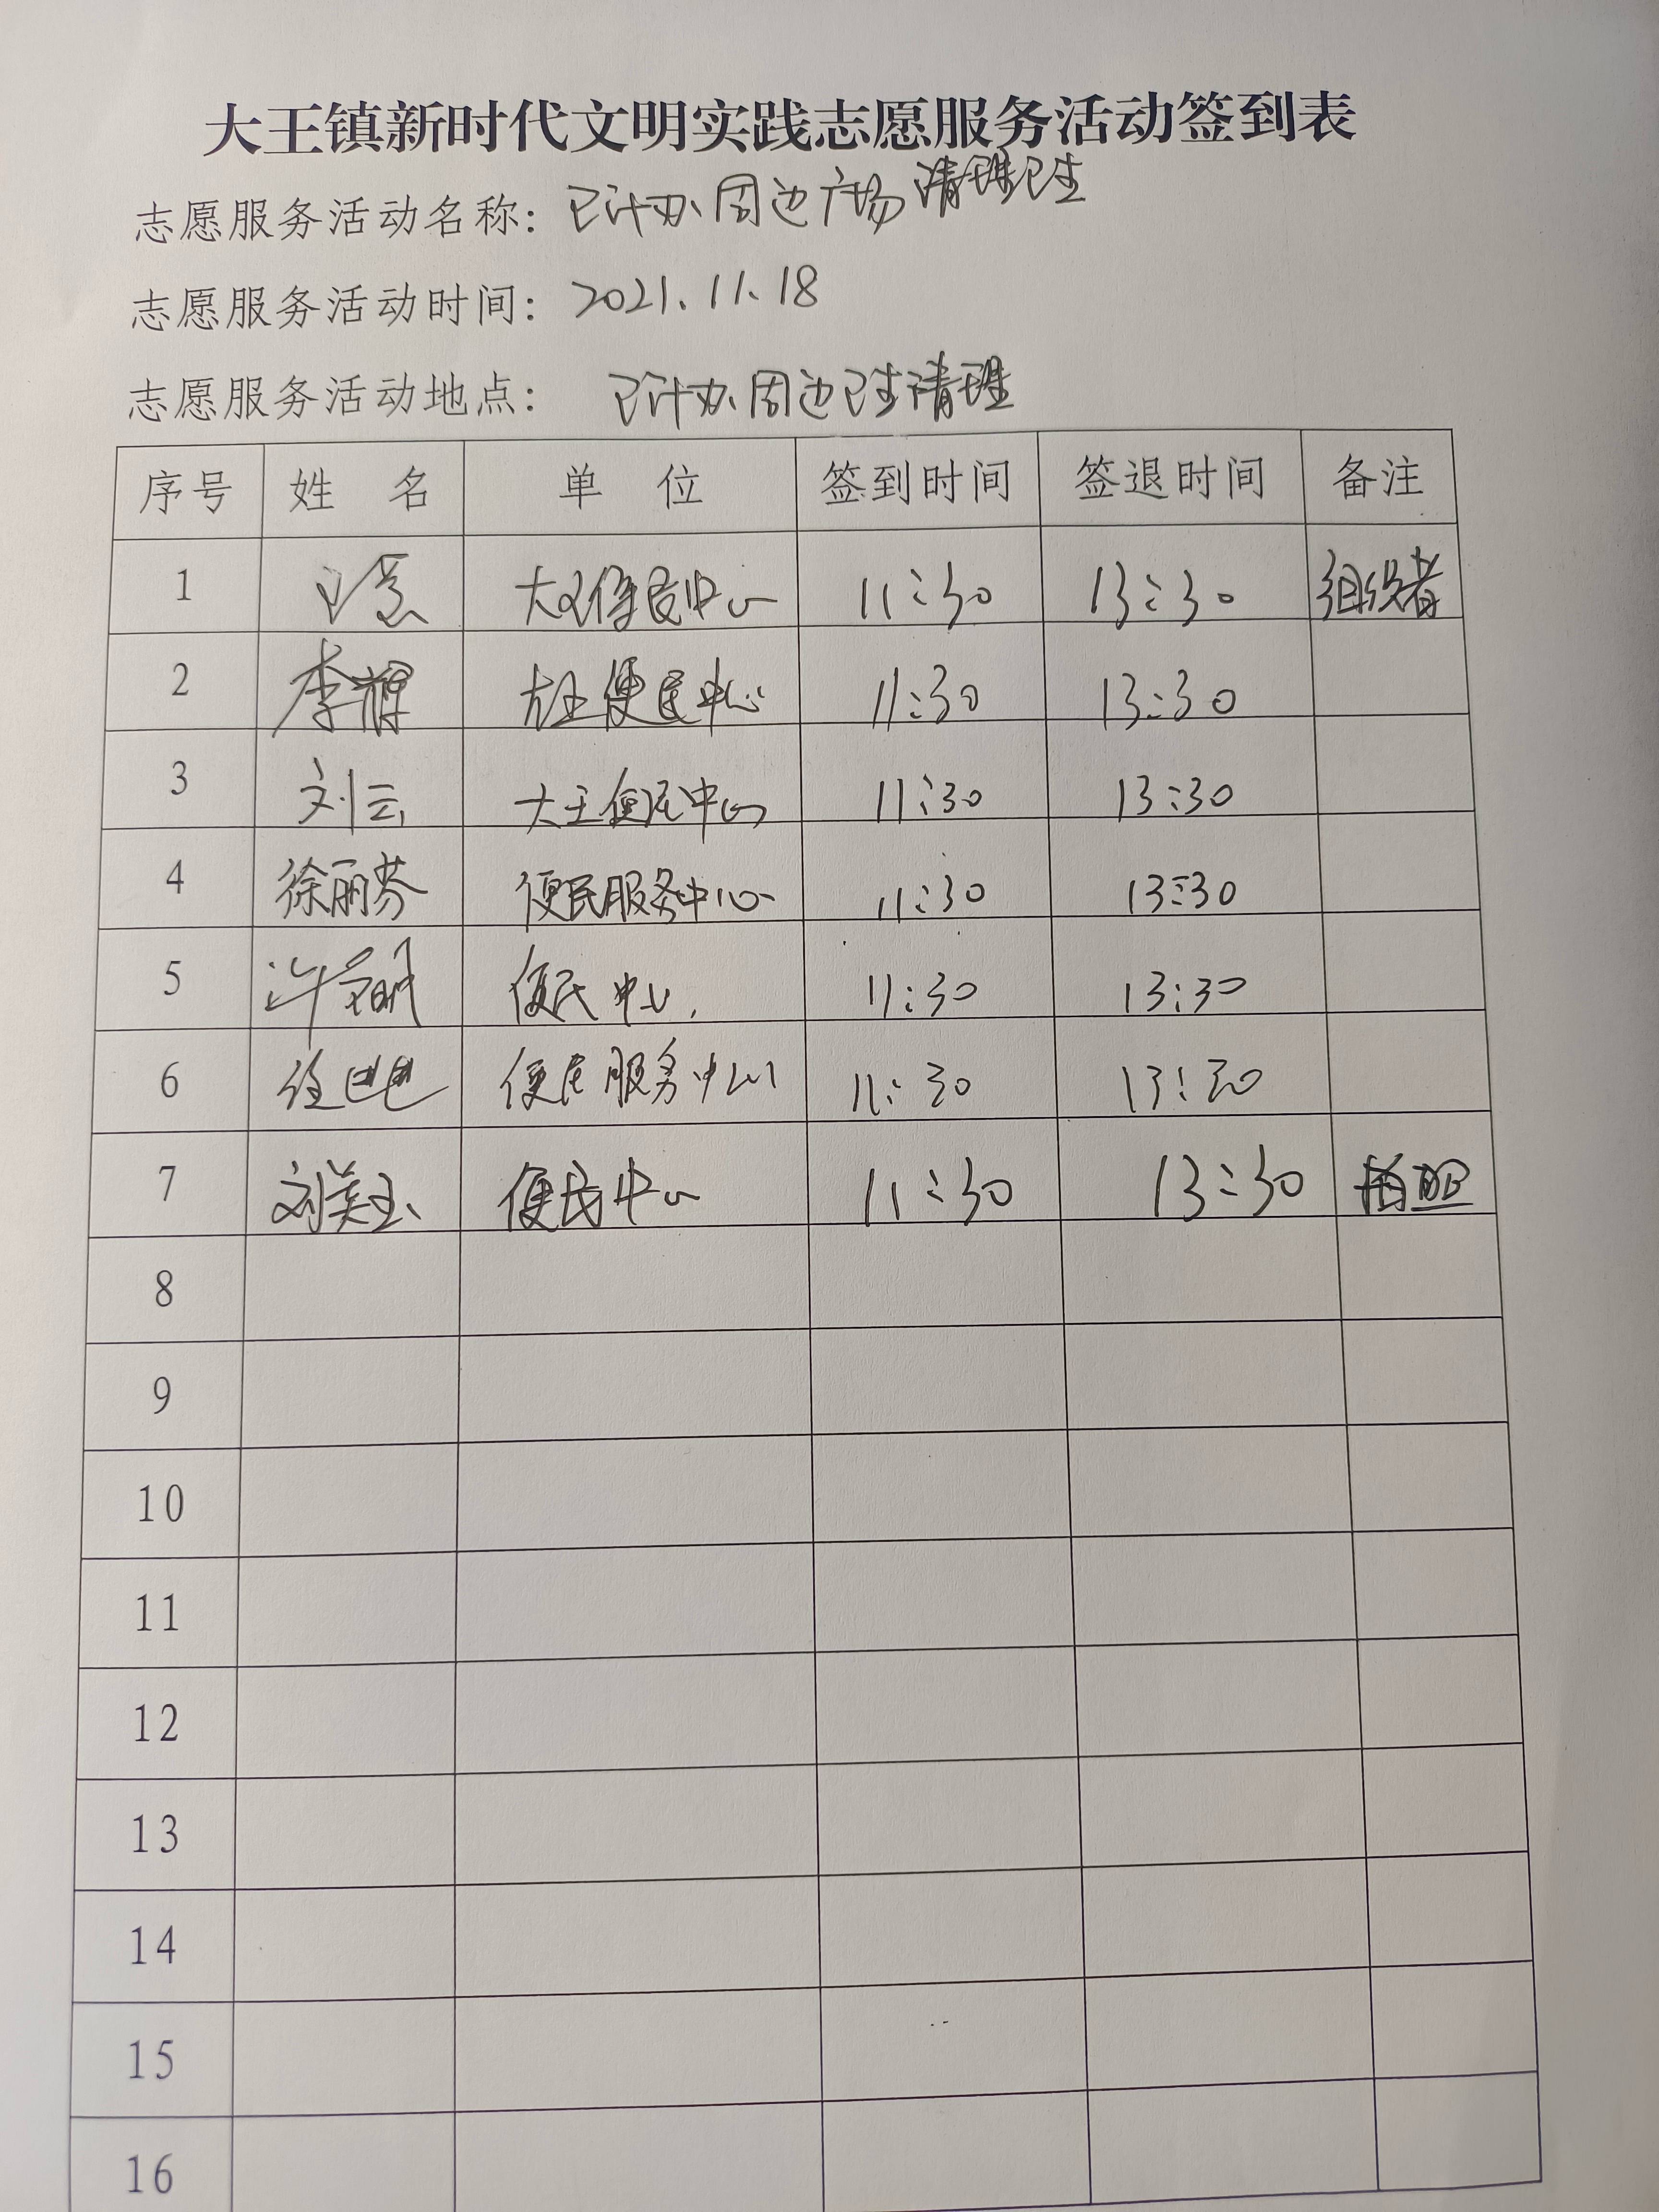 大王镇新时代文明实践志愿服务活动签到表
志愿服务活动名称：卫计办周边广场清理卫生
志愿服务活动时间：2021.11.18
志愿服务活动地点：卫计办周边卫生清理
序号 姓名 单位 签到时间 签退时间 备注
1 大王便民中心 11:30 13:30 组织者
2 李辉 大王便民中心 11:30 13:30
3 刘云 大王便民中心 11:30 13:30
4 徐丽芬 便民服务中心 11:30 13:30
5 许 便民中心 11:30 13:30
6 便民服务中心 11:30 13:30
7 刘美玉 便民中心 11:30 13:30 拍照
8
9
10
11
12
13
14
15
16